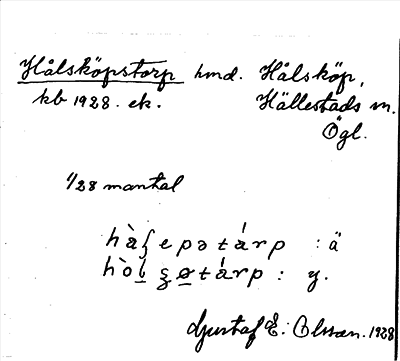 Hålsköpstorp hmd. Hålsköp,
kb 1928. ek. Hällestads sn.
Ögl.
1/28 mantal
hàʒepətárp : ä
hòlʒøtárp : y.
Gustaf E. Olsson. 1928